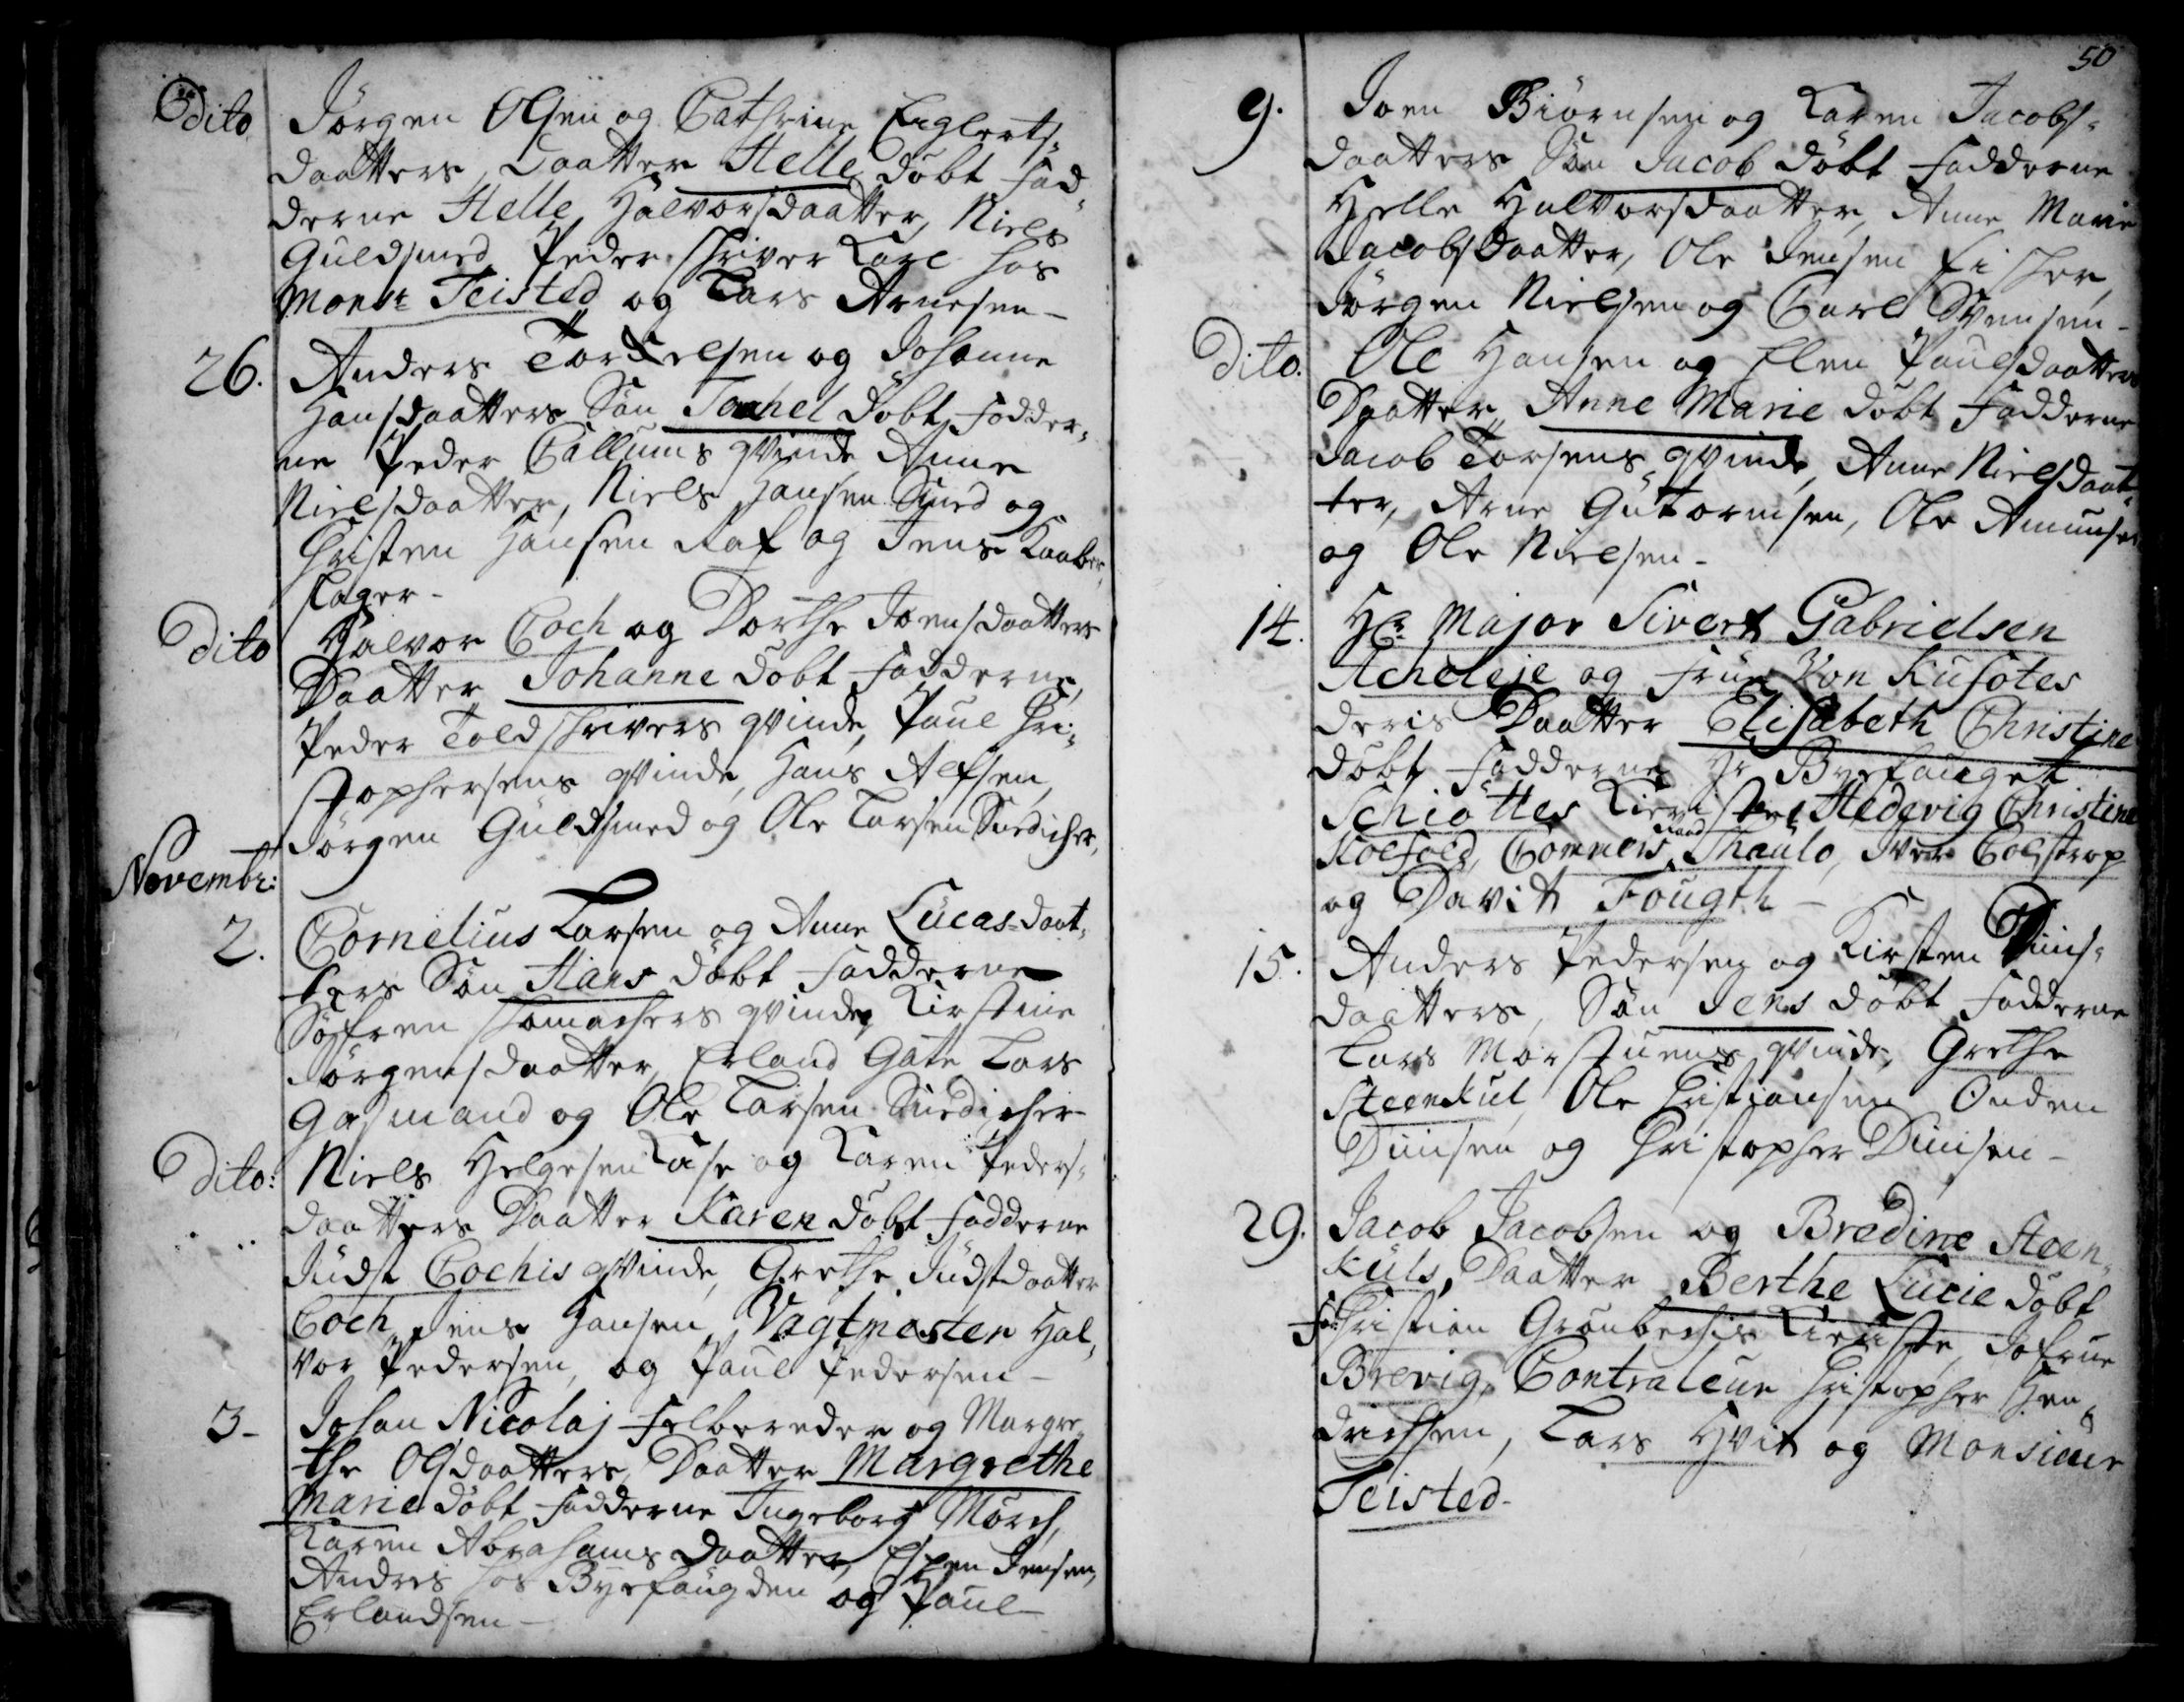 Dito Jörgen Olsen og Cathrine Englerts-
daatters, Daatter Helle döbt Fad-
derne Helle Halvorsdaatter, Niels
Guldsmed, Peder Skriver Karl hos
Monsr Teisted og Lars Arnesen -
26. Anders Torkelsen og Johanne
Hansdaatters Sön Torchel döbt Fadder-
ne Peder Callums qvinde, Anne
Nielsdaatter, Niels Hansen Smed og
Christen Hansen Raf og Jens Kaaber-
slager -
Dito Halvor Coch og Dorthe Joensdaatters
Daatter Johanne döbt Fadderne,
Peder Toldskrivers qvinde, Paul Chri-
stophersens qvinde, Hans Alfsen,
Jörgen Guldsmed og Ole Larsen Snedicher,
Novembr:
2. Cornelius Larsen og Anne Lucas-daat-
ters Sön Hans döbt Fadderne
Söfren Skomachers qvinde, Kirstine
Jörgensdaatter, Erland Gate, Lars
Gasmand og Ole Larsen Snedicher
Dito: Niels Helgesen Kase og Karen Peders-
daatters Daatter Karen döbt Fadderne
Judst Cochis qvinde, Grethe Judstdaatter
Coch, Jens Hansen Vagtmester Hal-
vor Pedersen, og Paul Pedersen -
3- Johan Nicolaj Felbereder og Margre-
the Olsdaatters Daatter Margrethe
Marie döbt Fadderne Ingeborg Mörch,
Karen Abrahams daatter, Espen Jensen,
Anders hos Byefaugden og Paul
Erlandsen -
50
9. Joen Biörnsen og Karen Jacobs-
daatters Sön Jacob döbt Fadderne
Helle Halvorsdaatter, Anne Marie
Jacobsdaatter, Ole Jensen Fisker,
Jörgen Nielsen og Carl Svensen -
Dito. Ole Hansen og Elen Paulsdaatters
Daatter Anne Marie döbt Fadderne
Jacob Torsens qvinde, Anne Nielsdaat-
ter, Arne Gutormsen, Ole Amunsen
og Ole Nielsen -
14. Hr Major Sivert Gabrielsen
Acheleje og Frue Von Kusotes
deris Daatter Elisabeth Christine
döbt Fadderne Hr Byefauget
Schiöttes Kieriste, Hedevig Christine
Kolfold, Commersraad Thaulo, Iver Colstrop
og Davit Fougth -
15. Anders Pedersen og Kirsten Diinis-
daatters, Sön Jens döbt Fadderne
Lars Morstuens qvinde, Grethe
Steenkul, Ole Christiansen Onden
Diinisen og Christopher Diinisen -
29. Jacob Jacobsen og Bredine Steen-
kuls, Daatter Berthe Lucie döbt
Fad: Christian Grönbechis Kieriste, Jofrue
Brevig, Contraleur Christopher Hen-
drichsen, Lars Hvit og Monsieur
Teisted -